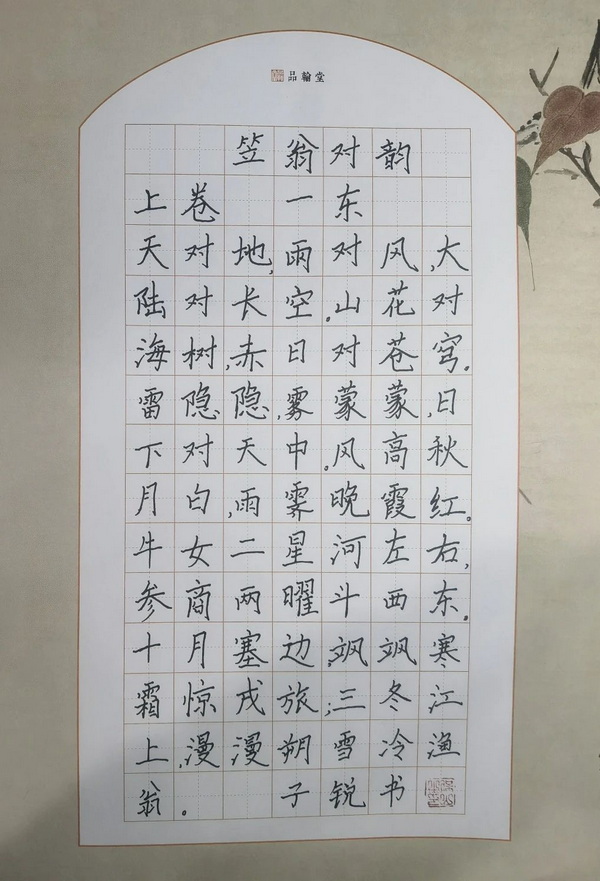 品翰堂
笠翁对韵
上卷 一东
天对地，雨对风，大
陆对长空。山花对
海树，赤日对苍穹。
雷隐隐，雾蒙蒙，日
下对天中。风高秋
月白，雨霁晚霞红。
牛女二星河左右，
参商两曜斗西东。
十月塞边，飒飒寒
霜惊戍旅；三冬江
上，漫漫朔雪冷渔
翁。 子锐书